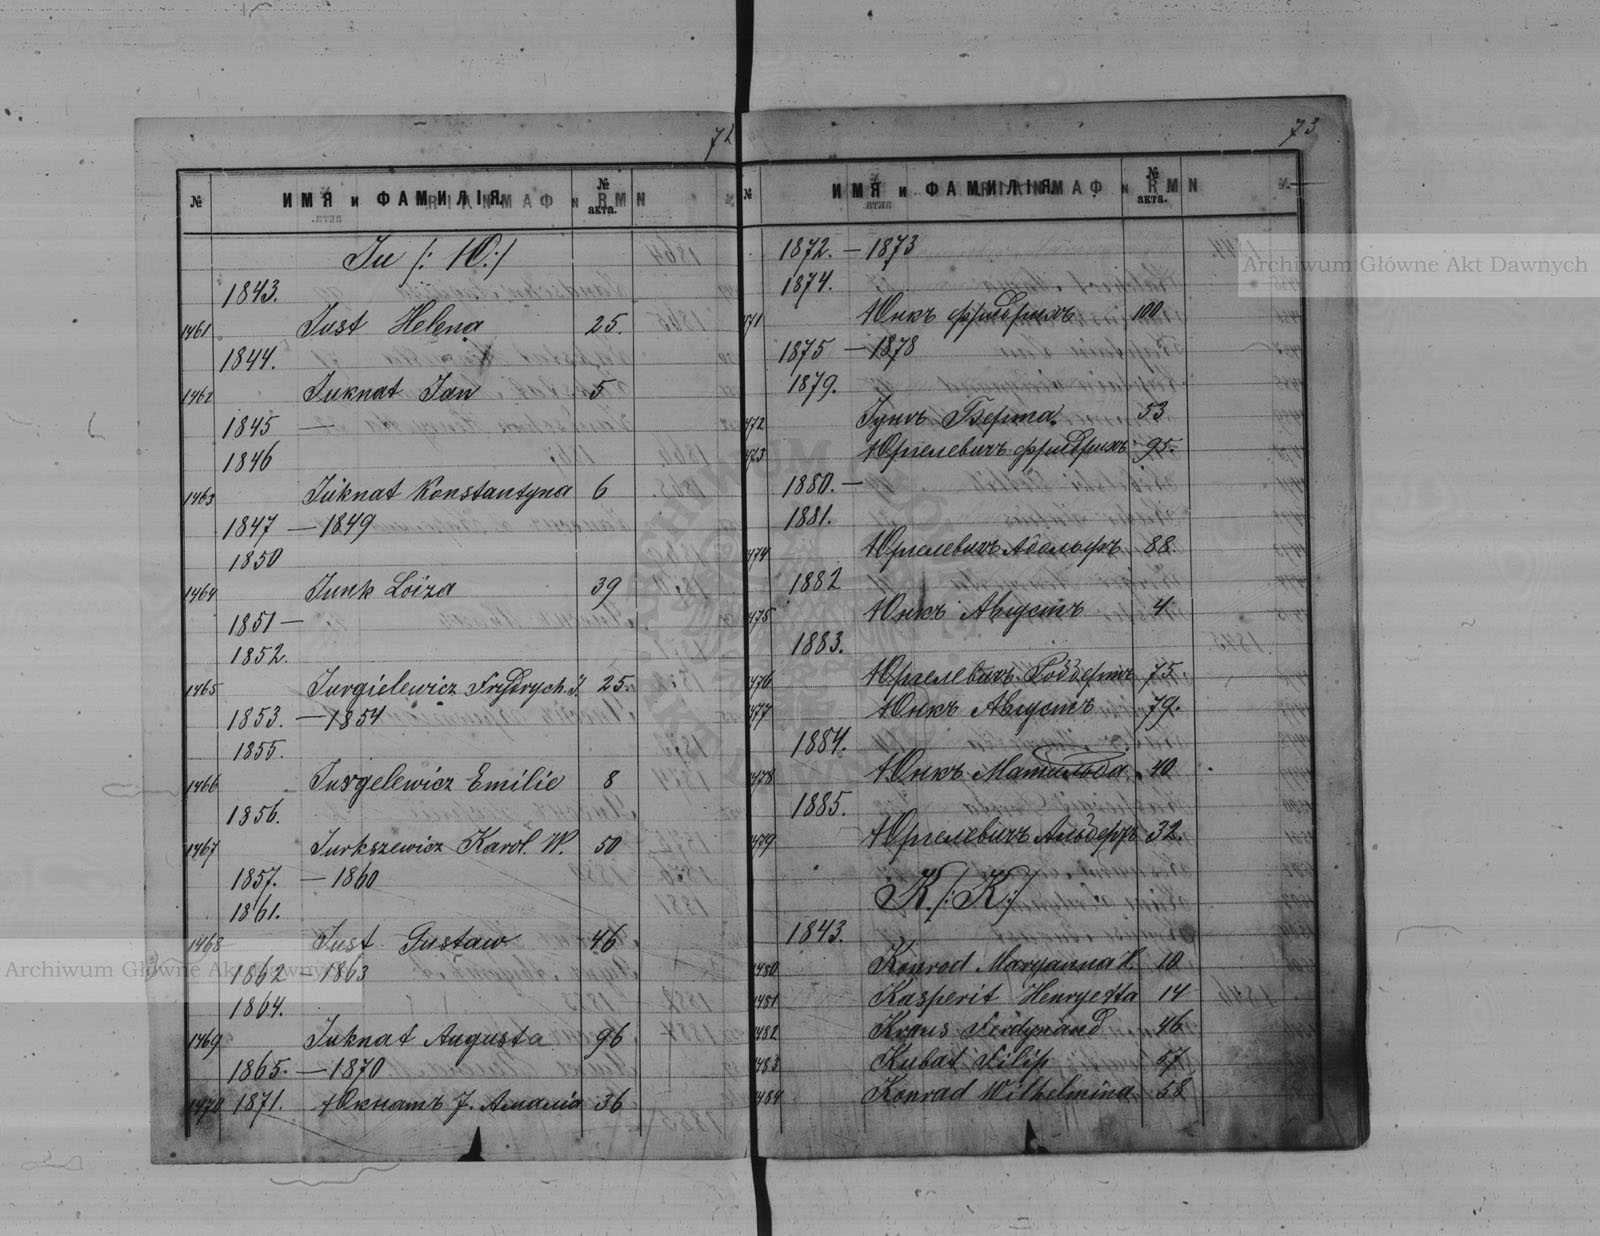 72
№ ИМЯ и ФАМИЛІЯ. № акта.
Ju /: Ю :/
1843.
1461 Just Helena 25.
1844.
1462 Juknat Jan 5
1845 —
1846
1463 Juknat Konstantyna 6
1847 — 1849
1850
1464 Junk Loiza 39
1851 —
1852.
1465 Jurgielewicz Frydrych J. 25.
1853. — 1854
1855.
1466 Jurgelewicz Emilie 8
1856.
1467 Jurkszewicz Karol. W. 50
1857. — 1860
1861.
1468 Just Gustaw 46
1862 — 1863
1864.
1469 Juknat Augusta 96
1865. — 1870
1470 1871. Юкнатъ J. Амалія 36
73
№ ИМЯ и ФАМИЛІЯ № акта.
1872. — 1873
1874.
471 Юнкъ Фридрихъ 100
1875 — 1878
1879.
472 Берта 53
473 Юргелевичъ Фридрихъ 95.
1880. —
1881.
474 Юргелевичъ Адольфъ 88.
1882
475 Юнкъ Августъ 4
1883.
476 Юргелевичъ Робертъ 75.
477 Юнкъ Августъ 79.
1884.
478 Юнкъ Матильда 40
1885.
479 Юргелевичъ Альбертъ 32.
K /: К :/
1843.
1480 Konrod Maryanna H. 10
1481 Kasperit Henryetta 14
1482 Kraus Ferdynand 46
1483 Kubat Filip 57
1484 Konrad Wilhelmina 58
Archiwum Główne Akt Dawnych
Archiwum Główne Akt Dawnych